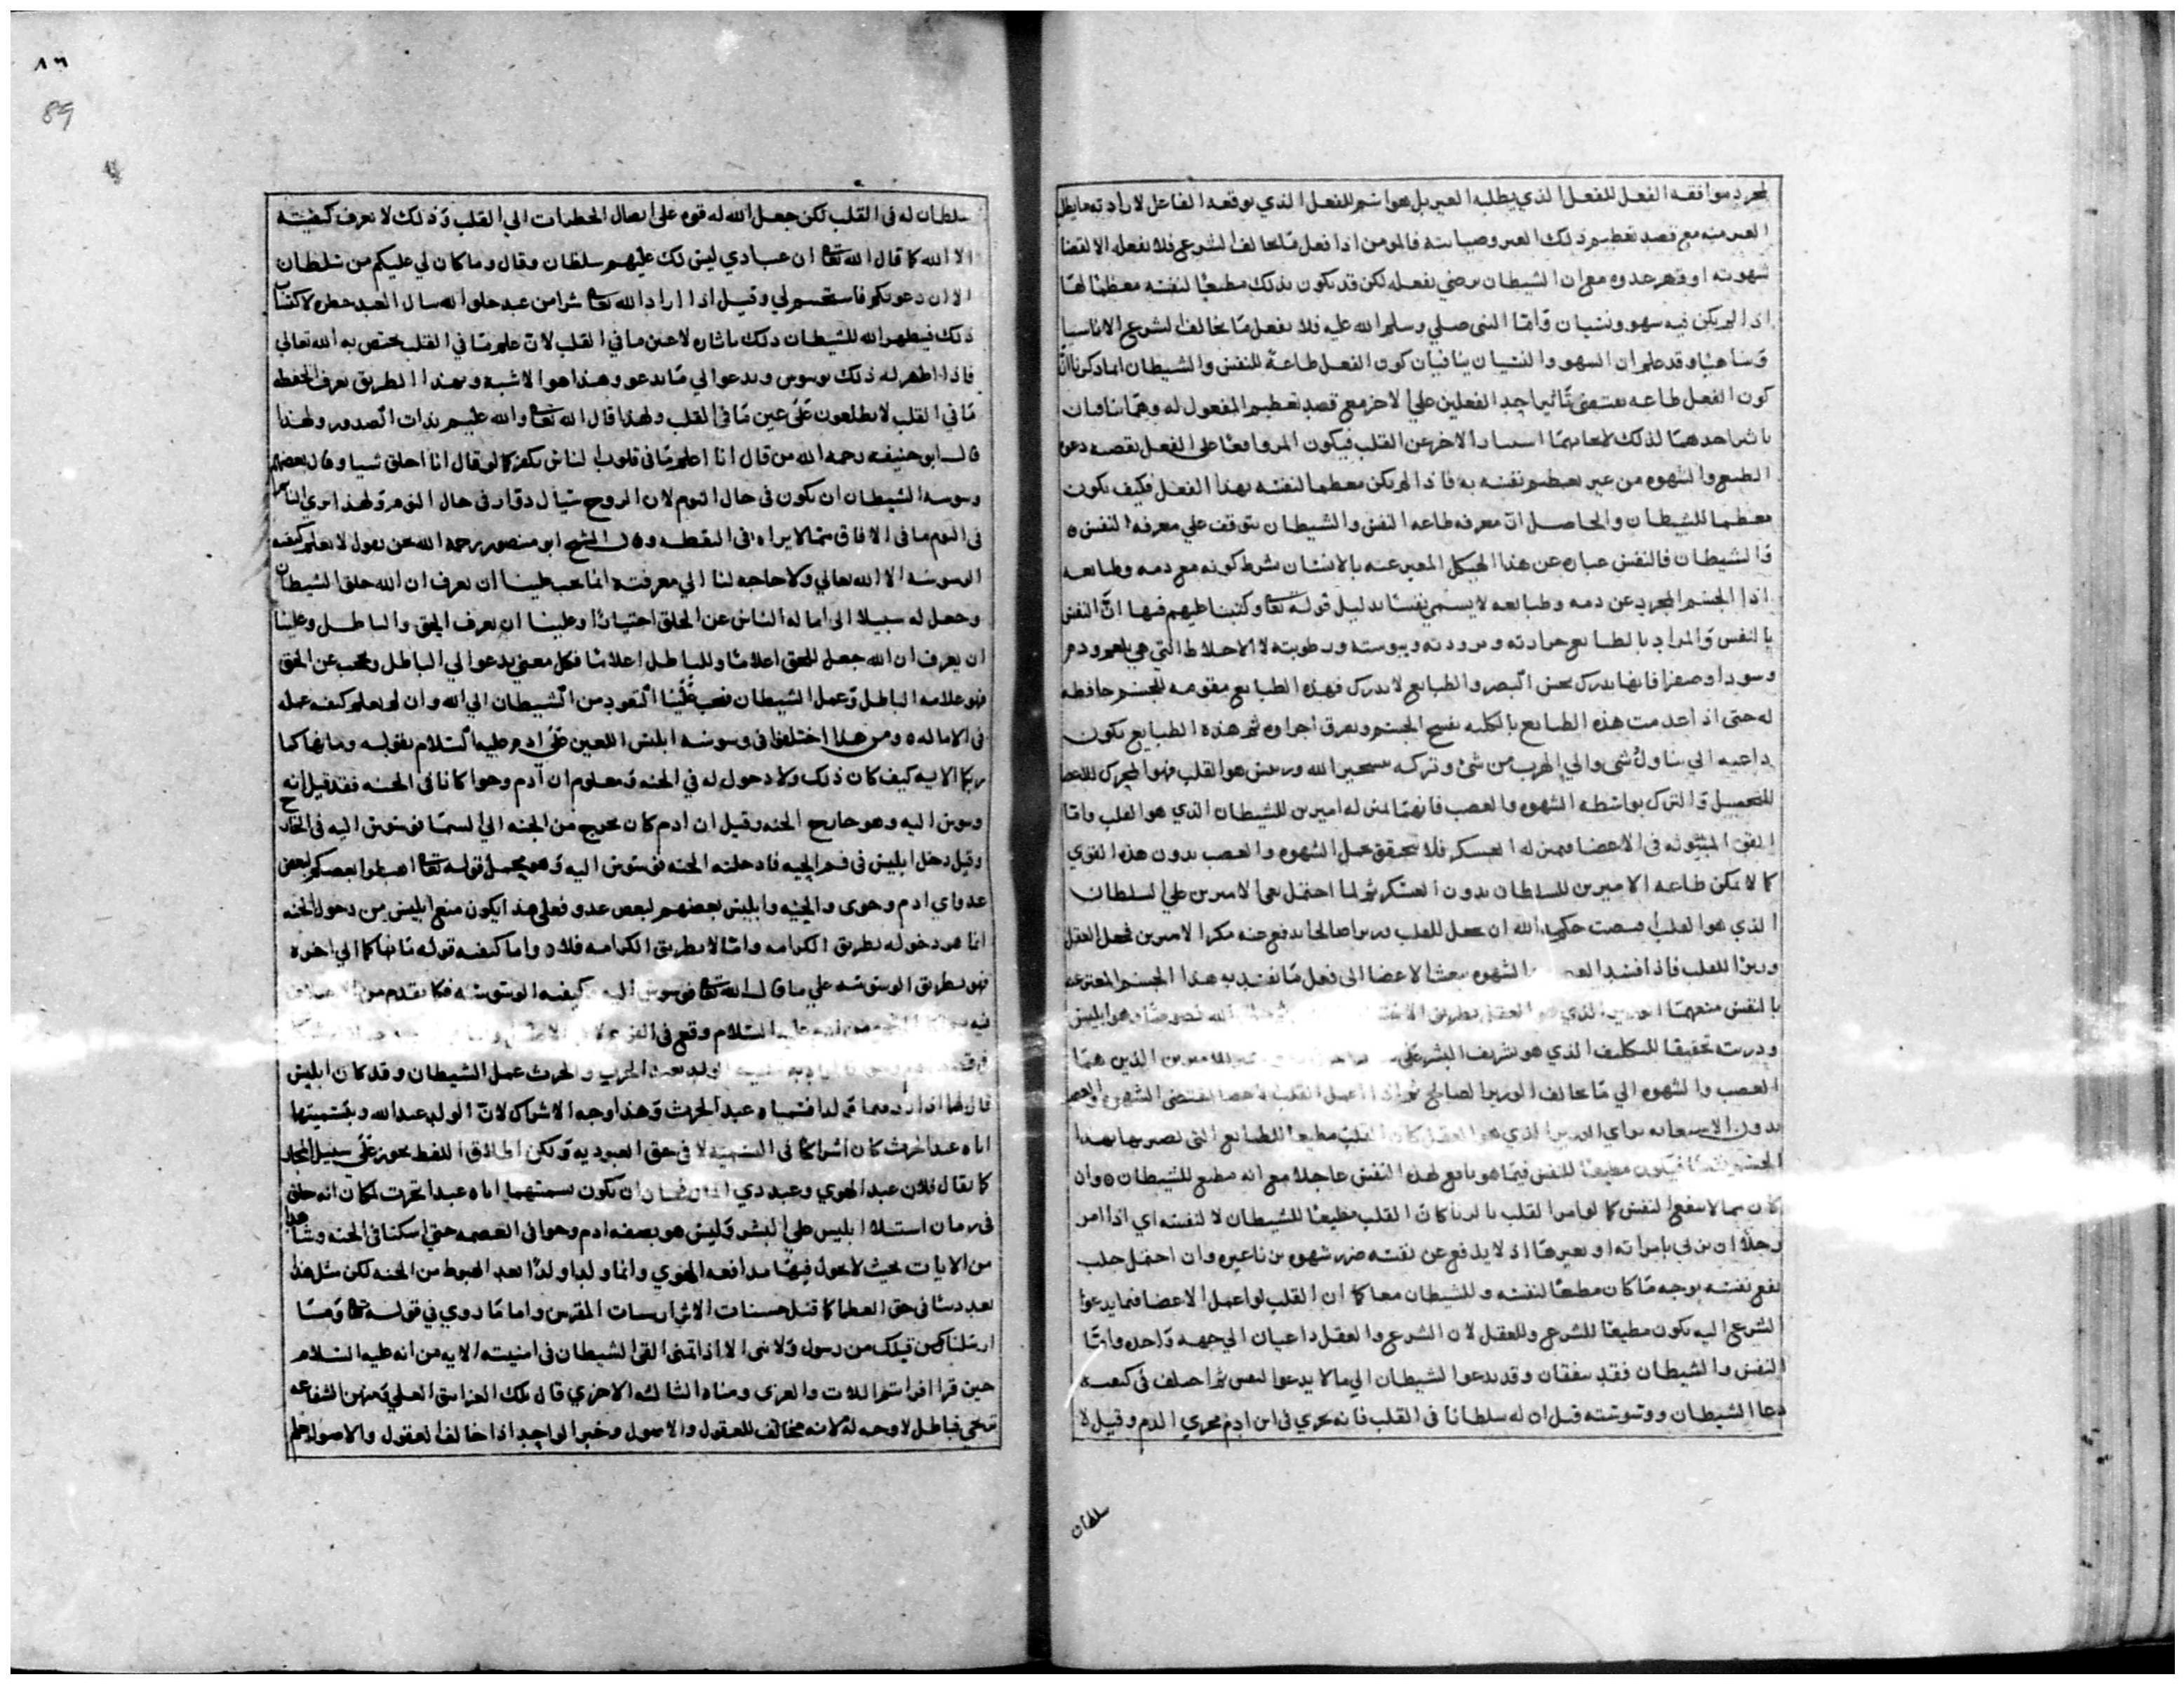 لمجرد موافقه الفعل للفعل الذي يطلبه الغير بل هو اسم للفعل الذي يوقعه الفاعل لارادته ما يطل
الغير منه مع قصد تعظيم ذلك الغير وصيانته فالمومن اذا فعل مخالفا لشرع فلا يفعل الا لقضا
شهوته او قهر عدوه مع ان الشيطان يرضي بفعله لكن قد يكون بذلك مطيعا لنفسه معظما لها
اذا لم يكن فيه سهو ونسيان واما النبي صلي وسلم الله عليه فلا يفعل ما يخالف الشرع الا ناسيا
وساهيا وقد علم ان السهو والنسيان ينافيان كون الفعل طاعة للنفس والشيطان لما ذكرنا ان
كون الفعل طاعه يقتضي تاثير احد الفعلين علي الاخر مع قصد تعظيم المفعول له وهما ينافيان
الطبع والشهوه من غير تعظيم نفسه به فاذا لم يكن معظما لنفسه بهذا الفعل فكيف يكون
معظما للشيطان والحاصل ان معرفه طاعه النفس والشيطان يتوقف علي معرفه النفس
والشيطان فالنفس عباره عن هذا الهيكل المعبر عنه بالانسان بشرط كونه مع دمه وطبايعه
اذا الجسم المجرد عن دمه وطبايعه لا يسمي نفسا بدليل قوله تعا وكتبنا عليهم فيها ان النفس
بالنفس والمراد بالطبايع حرارته وبرودته ويبوسته ورطوبته لا الاخلاط التي هي بلغم ودم
وسودا وصفرا فانها يدرك بحس البصر والطبايع لا يدرك فهذه الطبايع مقومه للجسم حافظه
له حتي اذا عدمت هذه الطبايع بالكليه يفسخ الجسم وتفرق اجزاوه ثم هذه الطبايع يكون
داعيه الي تناول شي والي الهرب من شي وتركه بتسخير الله ورييس هو القلب فهو المحرك للاعضا
للتحصيل والترك بواسطه الشهوه والغضب فانهما بمنزله اميرين للشيطان الذي هو القلب واما
القوي المبثوثه في الاعضا فبمنزله العسكر فلا يتحقق عمل الشهوه والغضب بدون هذه القوي
كما لا يمكن طاعه الاميرين للسلطان بدون العسكر ثم لما احتمل بغي الاميرين علي السلطان
الذي هو القلب اقتضت حكمه الله ان جعل للقلب وزيرا صالحا يدفع عنه مكر الاميرين فجعل العقل
وزيرا للقلب فاذا قصد الغضب والشهوه بعث الاعضا الي فعل ما يفسد به هذا الجسم المعبر عنه
بالنفس منعهما الوزير الذي هو العقل بطريق
وذريته تحقيقا للتكليف الذي هو تشريف البشر علي للاميرين الذين هما
الغضب والشهوه الي ما يخالف الوزير الصالح ثم اذا اعمل القلب الاعضا لمقتضي الشهوه والغضب
بدون الاستعانه براي الوزير الذي هو العقل كان القلب مطيعا للطبايع التي تصير بها هذا
الجسم نفسا فيكون مطيعا للنفس فيما هو نافع لهذه النفس عاجلا مع انه مطيع للشيطان وان
كان مما لا ينفع النفس كما لو امر القلب بالزنا كان القلب مطيعا للشيطان لا لنفسه اي اذا امر
رجلا ان يزني بامراته او بغيرها اذ لا يدفع عن نفسه ضرر شهوه زنا غيره وان احتمل جلب
نفع نفسه بوجه ما كان مطيعا لنفسه وللشيطان معا كما ان القلب لو اعمل الاعضا فيما يدعوا
الشرع اليه يكون مطيعا للشرع وللعقل لان الشرع والعقل داعيان الي جهه واحده واما
النفس والشيطان فقد يتفقان وقد يدعوا الشيطان الي ما لا يدعوا النفس ثم اختلف في كيفيه
دعا الشيطان ووسوسته قيل ان له سلطانا في القلب فانه يجري في ابن ادم مجري الدم وقيل لا
سلطان
٨٦
89
سلطان له في القلب لكن جعل الله له قوه علي ايصال الخطرات الي القلب وذلك لا نعرف كيفيته
الا الله كما قال الله تعا ان عبادي ليس لك عليهم سلطان وقال وما كان لي عليكم من سلطان
الا ان دعوتكم فاستجبتم لي وقيل اذا اراد الله تعا شرا من عبد خلق الله ببال العبد خطره لاكتساب
ذلك فيظهر الله للشيطان ذلك باثاره لا عين ما في القلب لان علم ما في القلب يختص به الله تعالي
فاذا اظهر له ذلك يوسوس ويدعوا الي ما يدعو وهذا هو الاشبه وبهذا الطريق يعرف الحفظه
ما في القلب لا يطلعون علي عين ما في القلب ولهذا قال الله تعا والله عليم بذات الصدور ولهذا
قال ابو حنيفه رحمه الله من قال انا اعلم ما في قلوب الناس يكفر كما لو قال انا اخلق شيا وقال بعضهم
وسوسه الشيطان ان يكون في حال النوم لان الروح سيال دوار في حال النوم ولهذا يري النايم
في النوم ما في الافاق مما لا يراه في اليقظه وقال الشيخ ابو منصور رحمه الله نحن نقول لا نعلم كيفيه
الوسوسه الا الله تعالي ولا حاجه لنا الي معرفته انما يجب علينا ان نعرف ان الله خلق الشيطان
وجعل له سبيلا الي اماله الناس عن الحق امتحانا وعلينا ان نعرف الحق والباطل وعلينا
ان يعرف ان الله جعل للحق اعلاما وللباطل اعلاما فكل معني يدعوا الي الباطل ويحجب عن الحق
فهو علامه الباطل وعمل الشيطان فيجب علينا التعوذ من الشيطان الي الله وان لم نعلم كيفيه عمله
في الاماله ومن هذا اختلفوا في وسوسه ابليس اللعين علي ادم عليه السلام بقوله وما نهاكما
ربكما الايه كيف كان ذلك ولا دخول له في الجنه ومعلوم ان آدم وحوا كانا في الجنه فقد قيل انه
وسوس اليه وهو خارج الجنه وقيل ان ادم كان يخرج من الجنه الي السما فوسوس اليه في الخارج
وقيل دخل ابليس في فم الحيه فادخلته الجنه فوسوس اليه وهو يحمل قوله تعا اهبطوا بعضكم لبعض
عدو اي ادم وحوي والحيه وابليس بعضهم لبعض عدو فعلي هذا يكون منع ابليس من دخول الجنه
انما هو دخوله بطريق الكرامه واما لا بطريق الكرامه فلا واما كيفيه قوله ما نهاكما الي اخره
فهو بطريق الوسوسه علي ما قال الله تعا فوسوس اليه وكيفيه الوسوسه فكما تقدم من الاختلاف
عليه السلام وقع في
الولد بعبد الحرث والحرث عمل الشيطان وقد كان ابليس
قال لهما اذا ولدتما ولدا فسمياه عبد الحرث وهذا وجه الاشراك لان الولد عبد الله وبتسميتها
اياه عبد الحرث كان اشراكا في التسميه لا في حق العبوديه ولكن اطلاق اللفظ يجوز علي سبيل المجاز
كما يقال فلان عبد الهوي وعبد ذي ان يكون تسميتهما اياه عبد الحرث لمكان انه خلق
في زمان استيلا ابليس علي البشر وليس هو بصفه ادم وحوا في العصمه حتي اسكنا في الجنه وشاهدا
من الايات بحيث لا يحول فيها مدافعه الهوي وانما ولد اولادا بعد الهبوط من الجنه لكن مثل هذا
يعد ذنبا في حق العظما كما قيل حسنات الابرار سيات المقربين واما ما روي في قوله تعا وما
ارسلنا من قبلك من رسول ولا نبي الا اذا تمني القي الشيطان في امنيته الايه من انه عليه السلام
حين قرا افرايتم اللات والعزى ومناه الثالثه الاخري قال تلك الغرانيق العلي ومنهن الشفاعه
ترتجي فباطل لا وجه له لانه مخالف للعقول والاصول وخبر الواحد اذا خالف العقول والاصول